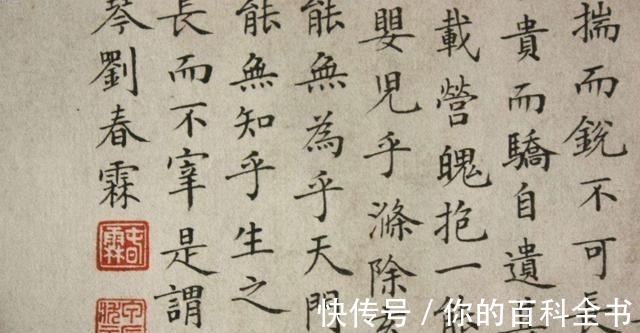 揣而銳不可
貴而驕自遺
載營魄抱一能
嬰兒乎滌除
能無為乎天門
能無知乎生之
長而不宰是謂
琴劉春霖
春霖
快传号 / 你的百科全书